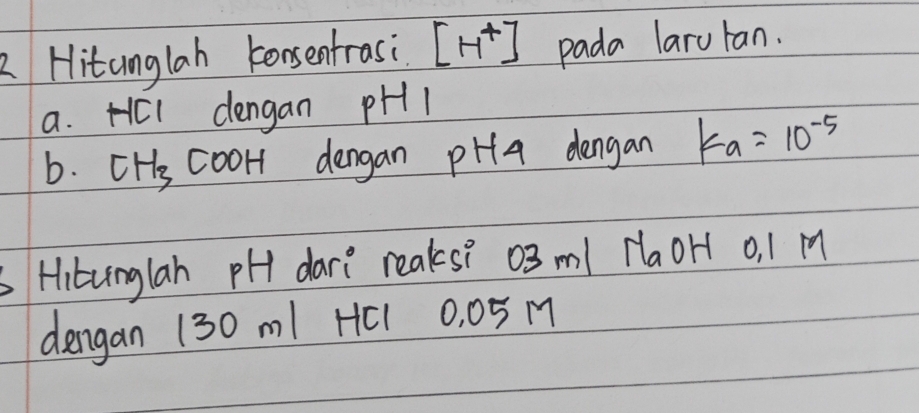 2 Hitunglah konsentrasi [H⁺] pada larutan.
a. HCl dengan pH 1
b. CH₃COOH dengan pH 4 dengan ka = 10⁻⁵
3 Hitunglah pH dari reaksi 03 ml NaOH 0,1 M
dengan 130 ml HCl 0,05 M